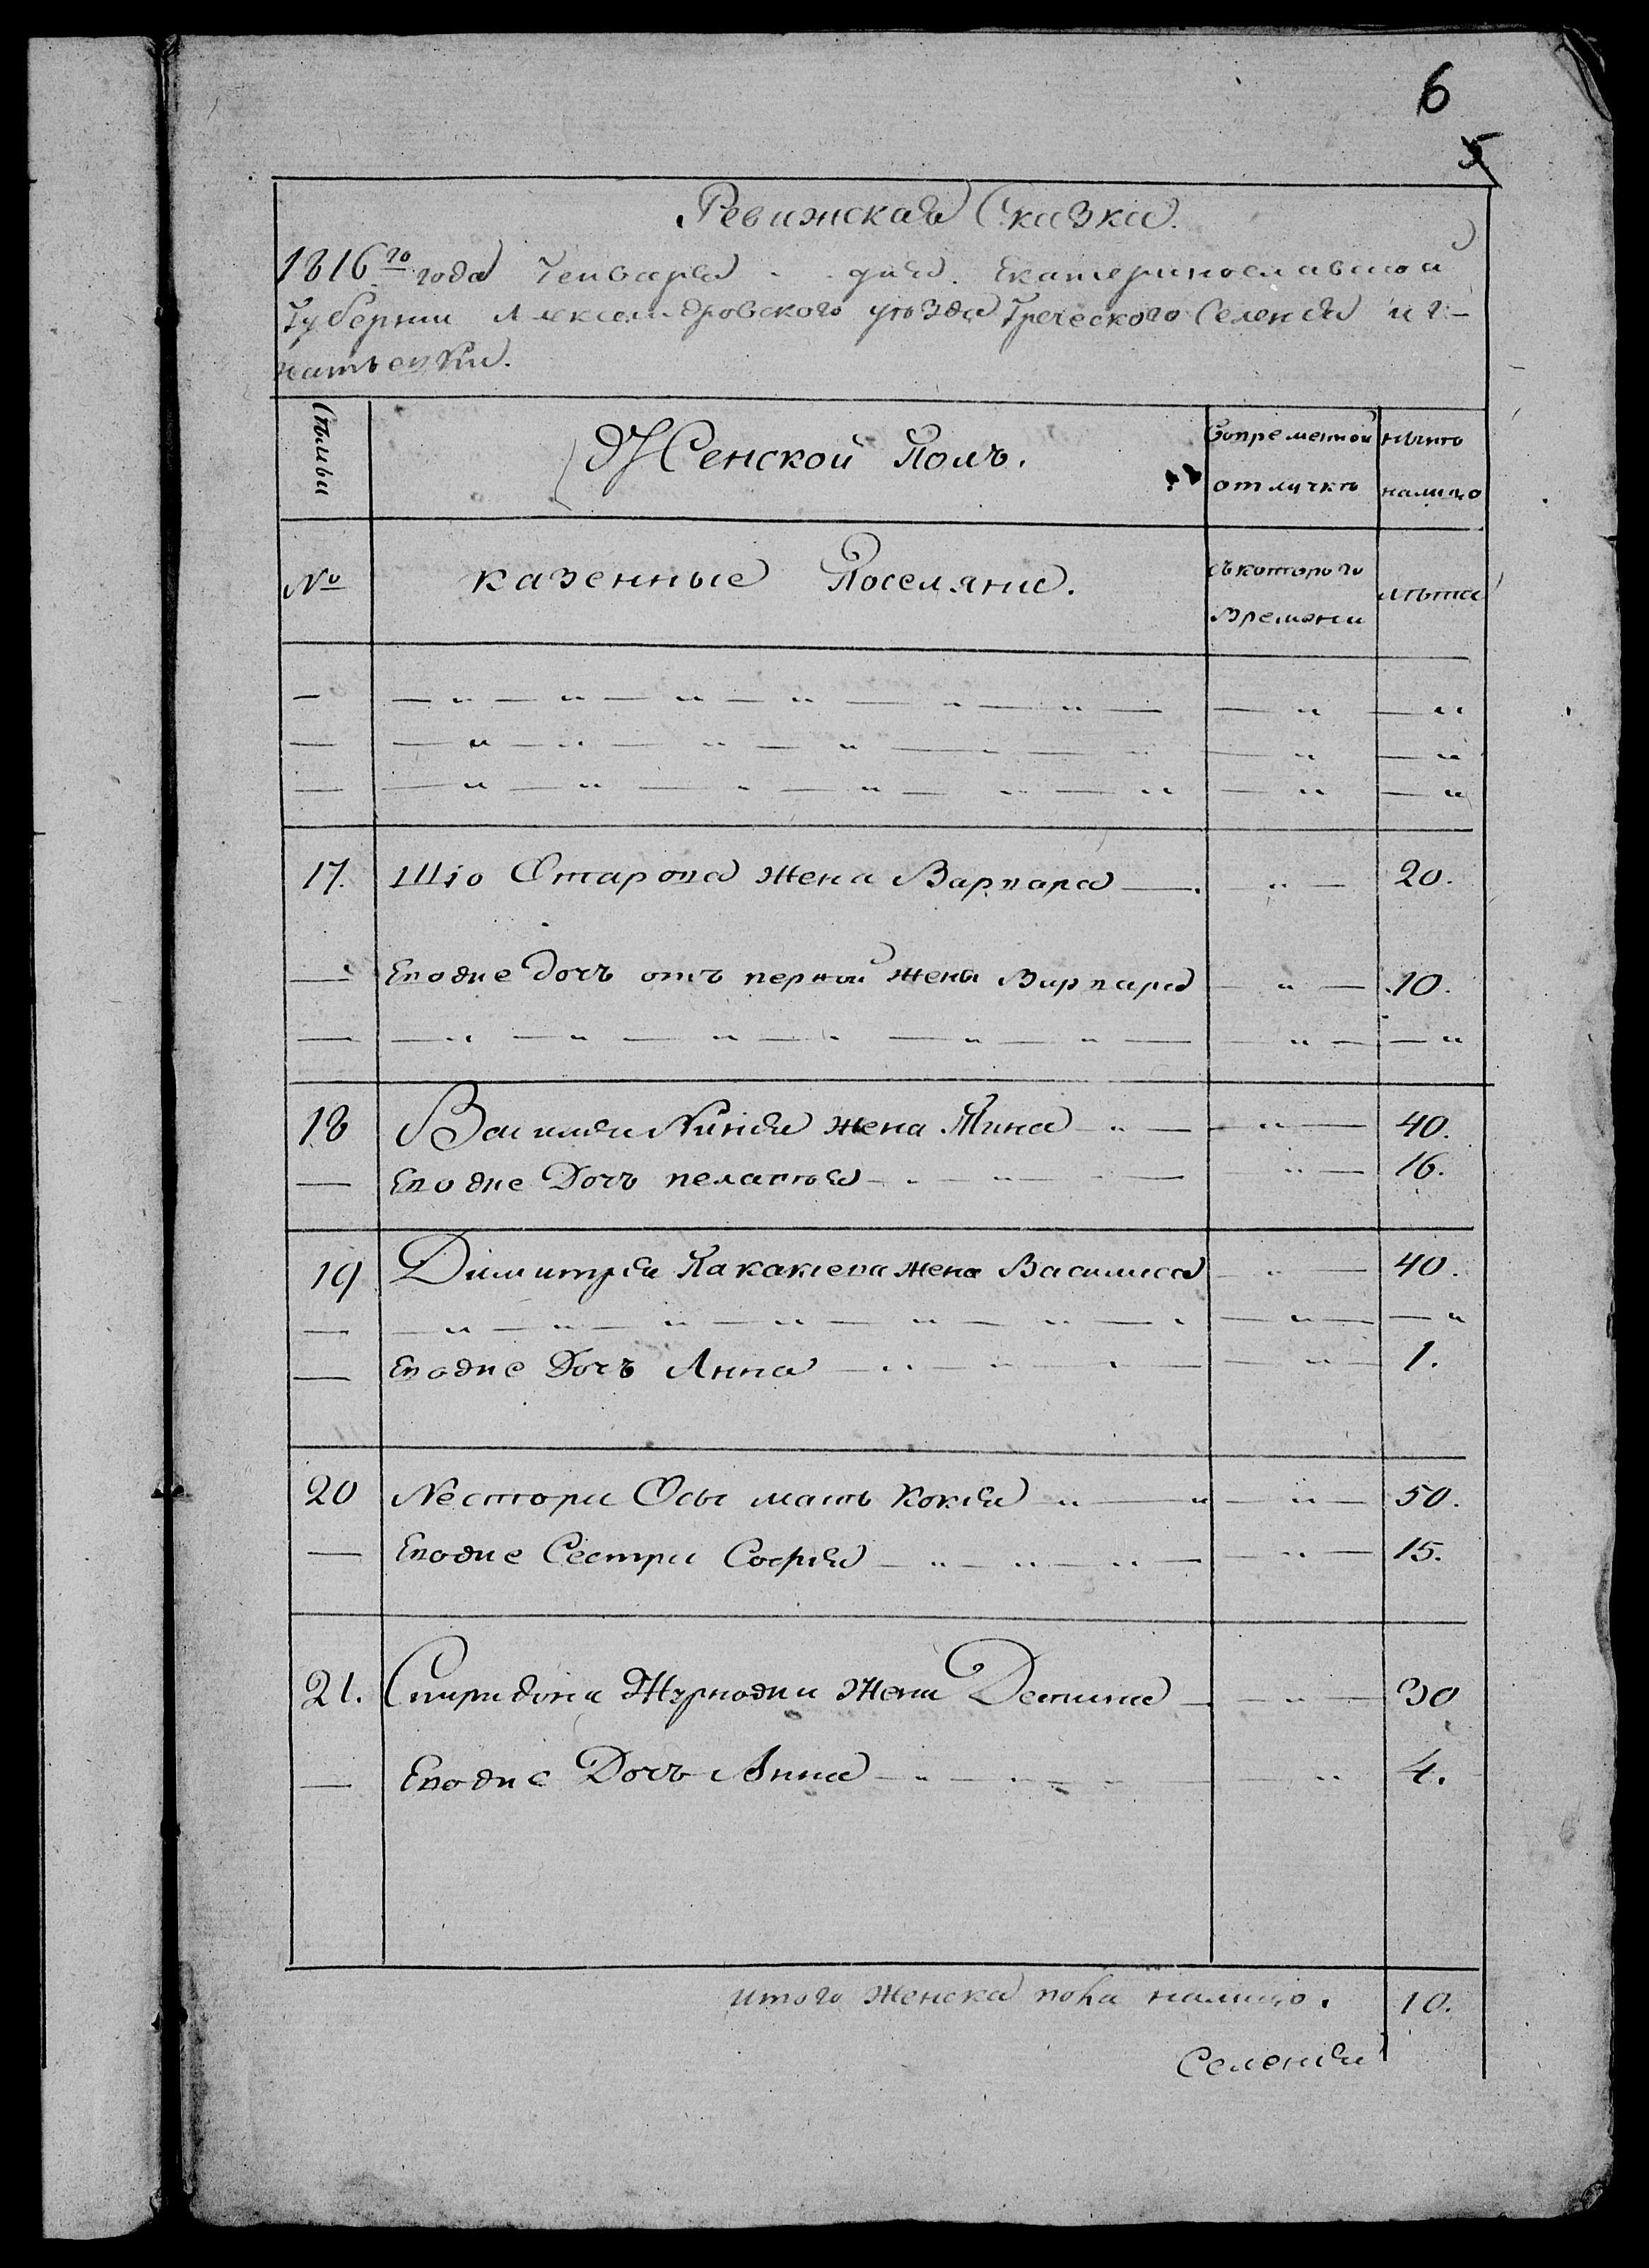 6
5
Ревижская Сказка.
1816го года Генваря дня. Екатеринославской
Губернии Александровского уезда Греческого Селения иг-
натьевки.
Семьи
Женской Полъ.
Вовременной
отлучкѣ
нынѣ
налицо
№
казенные Поселяне.
съкоторого
Времяни
лѣта
17. Шіо Старова жена Варвара 20.
Евоdже дочъ отъ первой жены Варвара 10.
18 Василия жена 40.
Евоdже Дочъ пелагѣя 16.
19 Димитрия жена Василиса 40.
Евоdже Дочъ Анна 1.
20 Нестора мать Кокия 50.
Евоdже Сестра София 15.
21. Спиридона жена Деспина 30
Евоdже Дочъ Анна 4.
итого женска пола налицо. 10.
Селения